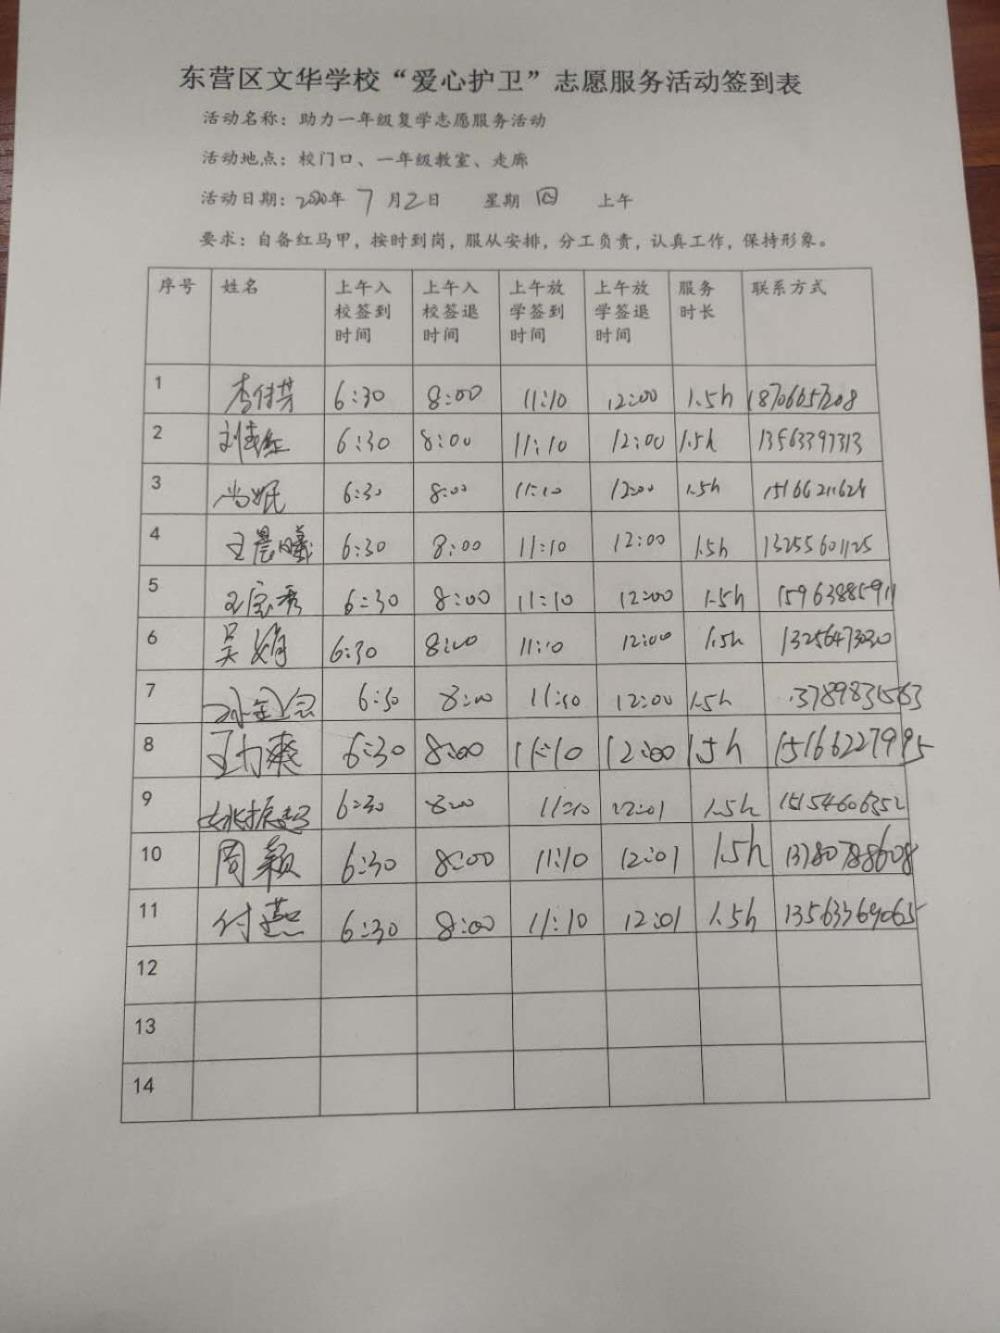 东营区文华学校“爱心护卫”志愿服务活动签到表
活动名称：助力一年级复学志愿服务活动
活动地点：校门口、一年级教室、走廊
活动日期：2020年 7 月2日 星期 四 上午
要求：自备红马甲，按时到岗，服从安排，分工负责，认真工作，保持形象。
序号 姓名 上午入校签到时间 上午入校签退时间 上午放学签到时间 上午放学签退时间 服务时长 联系方式
1 6:30 8:00 11:10 12:00 1.5h
2 6:30 8:00 11:10 12:00 1.5h 13563397313
3 6:30 8:00 11:10 12:00 1.5h
4 王晨曦 6:30 8:00 11:10 12:00 1.5h 13255601125
5 6:30 8:00 11:10 12:00 1.5h 15963885911
6 吴娟 6:30 8:00 11:10 12:00 1.5h 13256473030
7 6:30 8:00 11:10 12:00 1.5h
8 王力爽 6:30 8:00 11:10 12:00 1.5h 15166227995
9 姚振超 6:30 8:00 11:10 12:01 1.5h 15154606352
10 周颖 6:30 8:00 11:10 12:01 1.5h 13780788608
11 付燕 6:30 8:00 11:10 12:01 1.5h
12
13
14